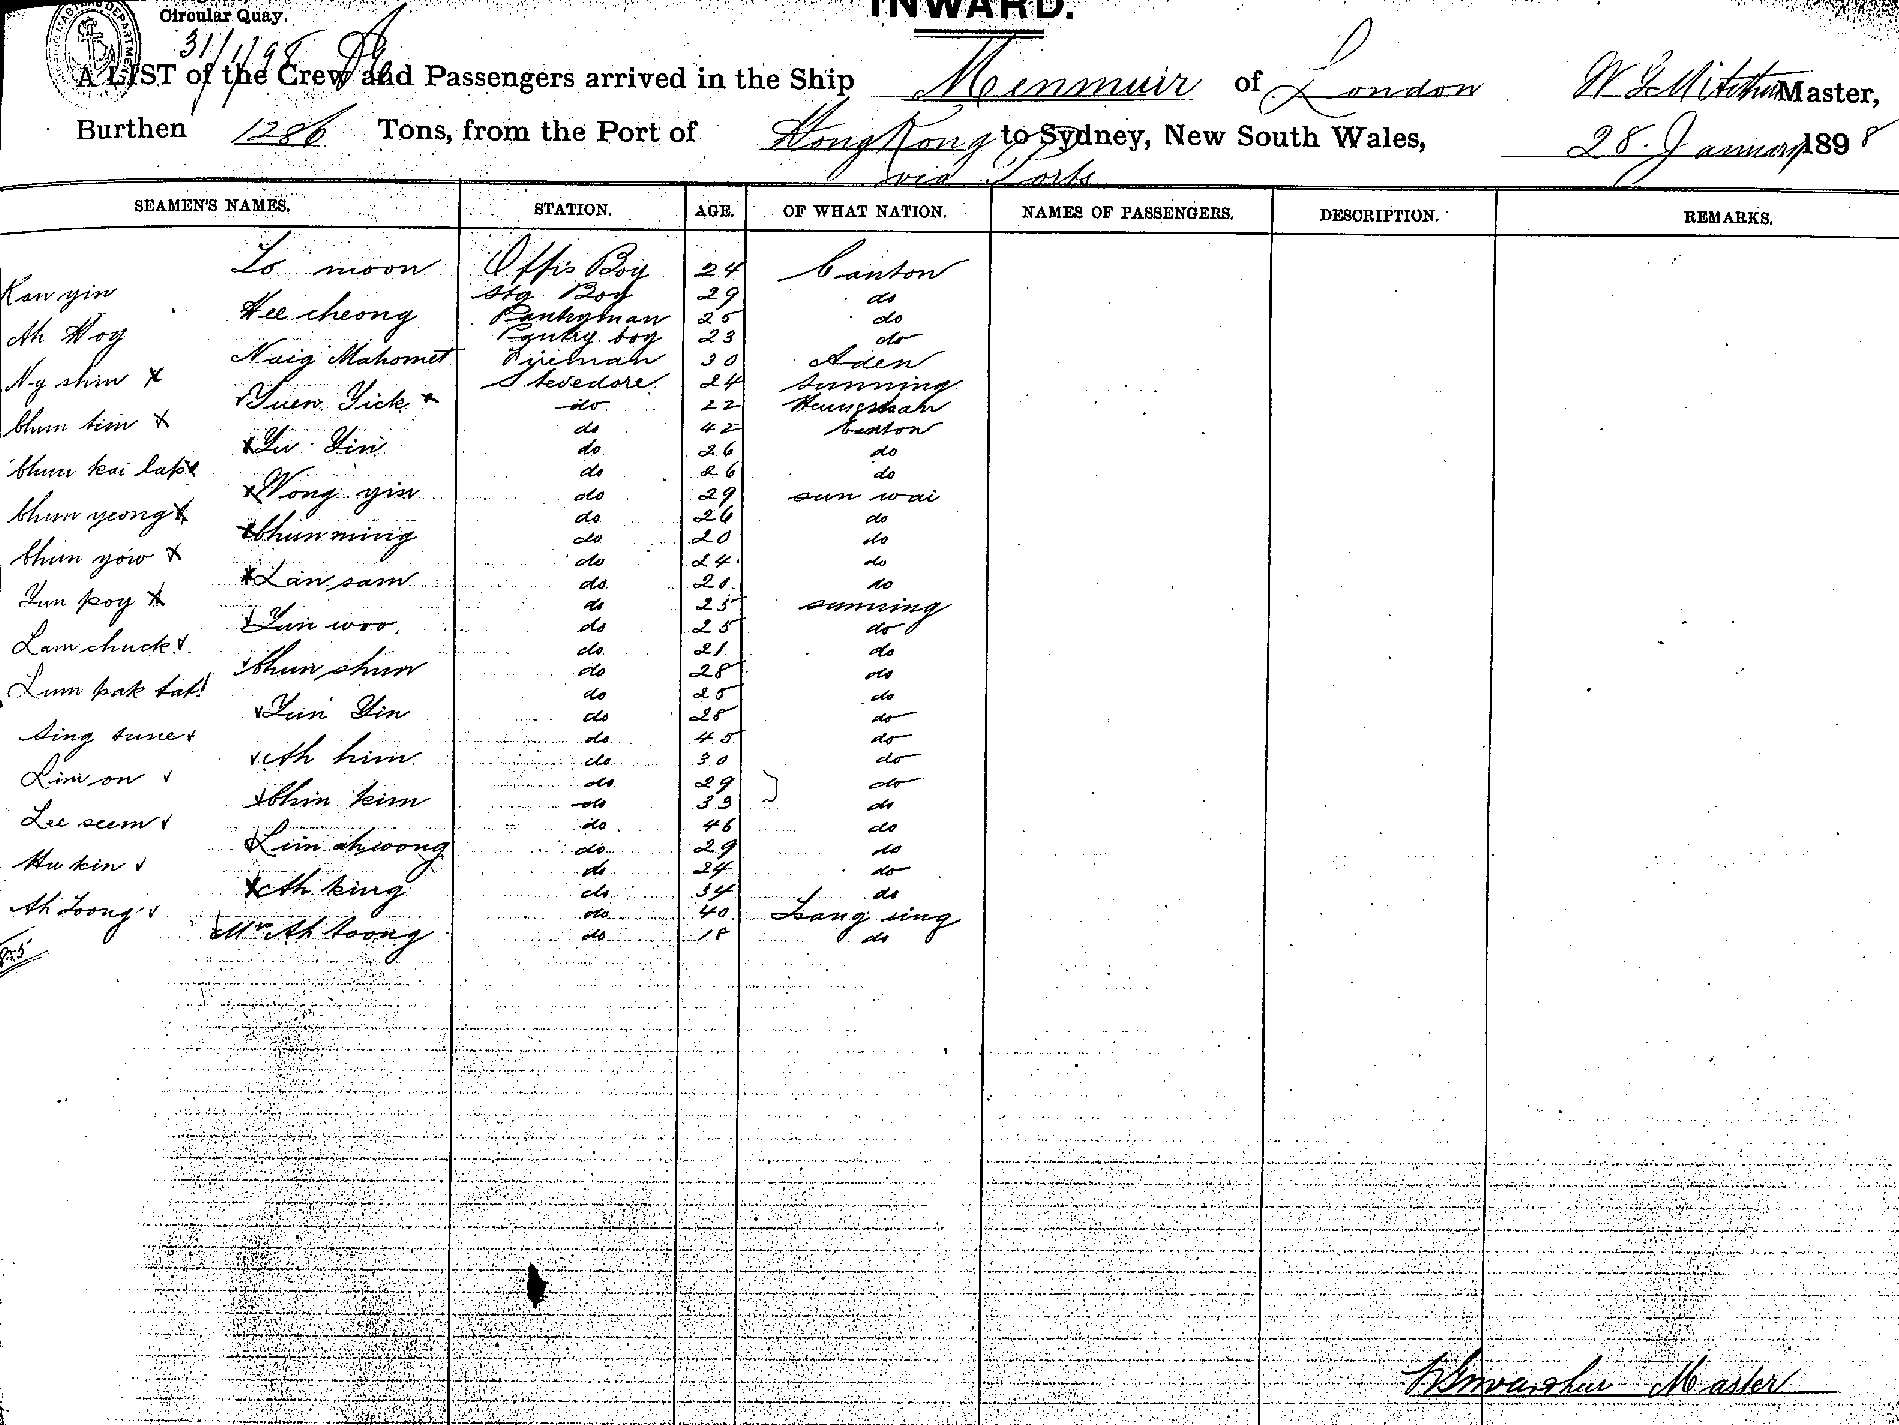 INWARD.
Circular Quay.
31/1/98
A LIST of the Crew and Passengers arrived in the Ship Menmuir of London Master,
Burthen 1286 Tons, from the Port of Hong Kong to Sydney, New South Wales, 28. January 1898
via Ports
SEAMEN'S NAMES. STATION. AGE. OF WHAT NATION. NAMES OF PASSENGERS. DESCRIPTION. REMARKS.
Lo moon Offis Boy 24 Canton
Kan yin Stg Boy 29 do
Hee cheong Pantryman 25 do
Ah Hoy Pantry boy 23 do
Naig Mahomet Fireman 30 Aden
Ng shin x Stevedore 24 Sunning
Yuen Yick x do 22
Chun tim x do 42 Canton
x Yu Yin do 26 do
Chun kai lap x do 26 do
x Wong yin do 29 sun wai
Chun yeong x do 26 do
x Chun ming do 20 do
Chun yow x do 24 do
x Lan sam do 20 do
Yun poy x do 25 sunning
Yun woo do 25 do
Lam chuck do 21 do
Chun shun do 28 do
Lum pak tat do 25 do
Yun Yin do 28 do
Sing sune do 45 do
Ah him do 30 do
Lim on do 29 do
Chin kim do 33 do
Lee seem do 46 do
Lim ah wong do 29 do
Hu kin do 24 do
x Ah king do 34 do
Ah Toong do 40 Tsang sing
Mrs Ah toong do 18 do
Master